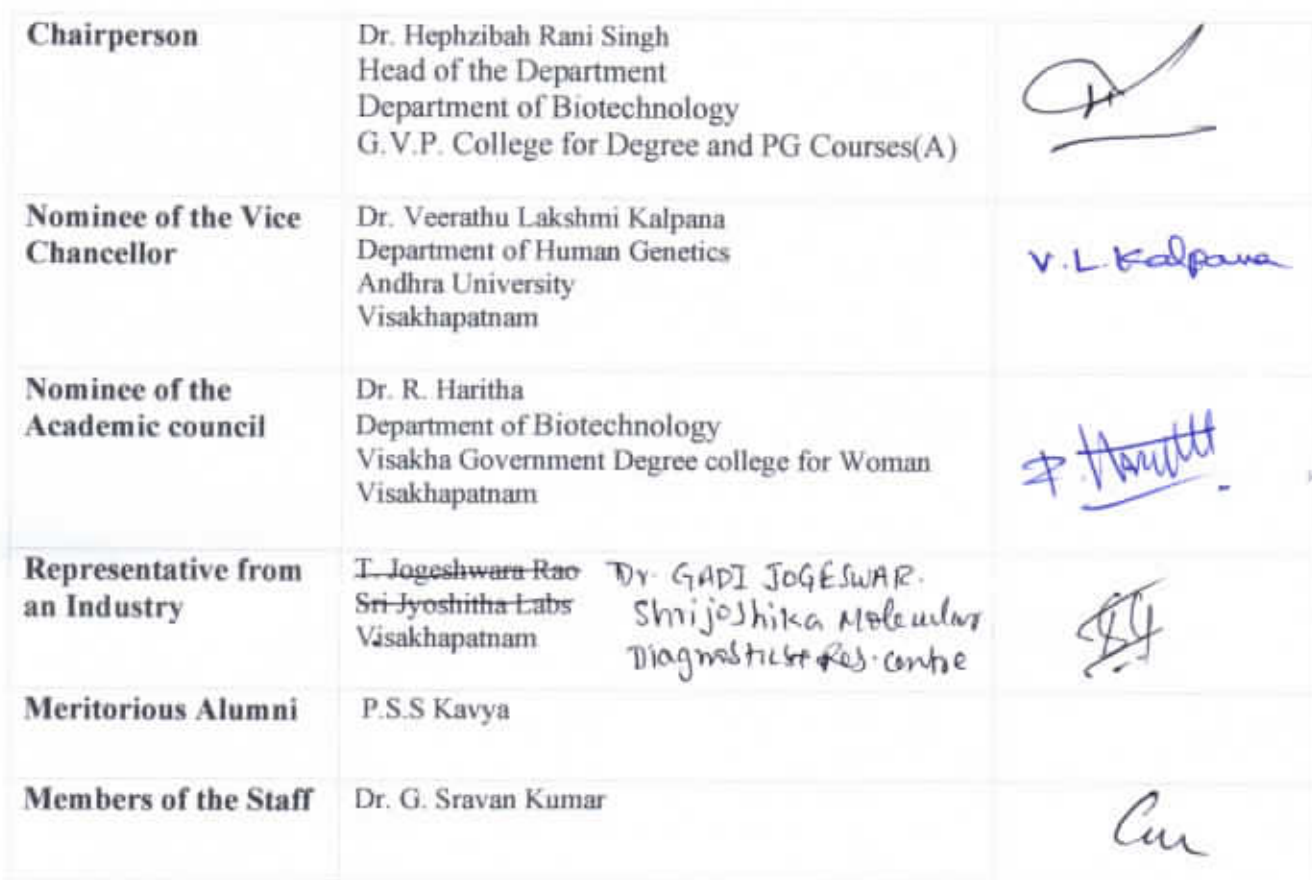 Chairperson
Dr. Hephzibah Rani Singh
Head of the Department
Department of Biotechnology
G.V.P. College for Degree and PG Courses(A)
Nominee of the Vice
Chancellor
Dr. Veerathu Lakshmi Kalpana
Department of Human Genetics
Andhra University
Visakhapatnam
V.L.Kalpana
Nominee of the
Academic council
Dr. R. Haritha
Department of Biotechnology
Visakha Government Degree college for Woman
Visakhapatnam
Representative from
an Industry
T. Jogeshwara Rao
Sri Jyoshitha Labs
Visakhapatnam
Dr. GADI JOGESWAR.
Shrijoshika Molecular
Diagnostics Res. centre
Meritorious Alumni
P.S.S Kavya
Members of the Staff
Dr. G. Sravan Kumar